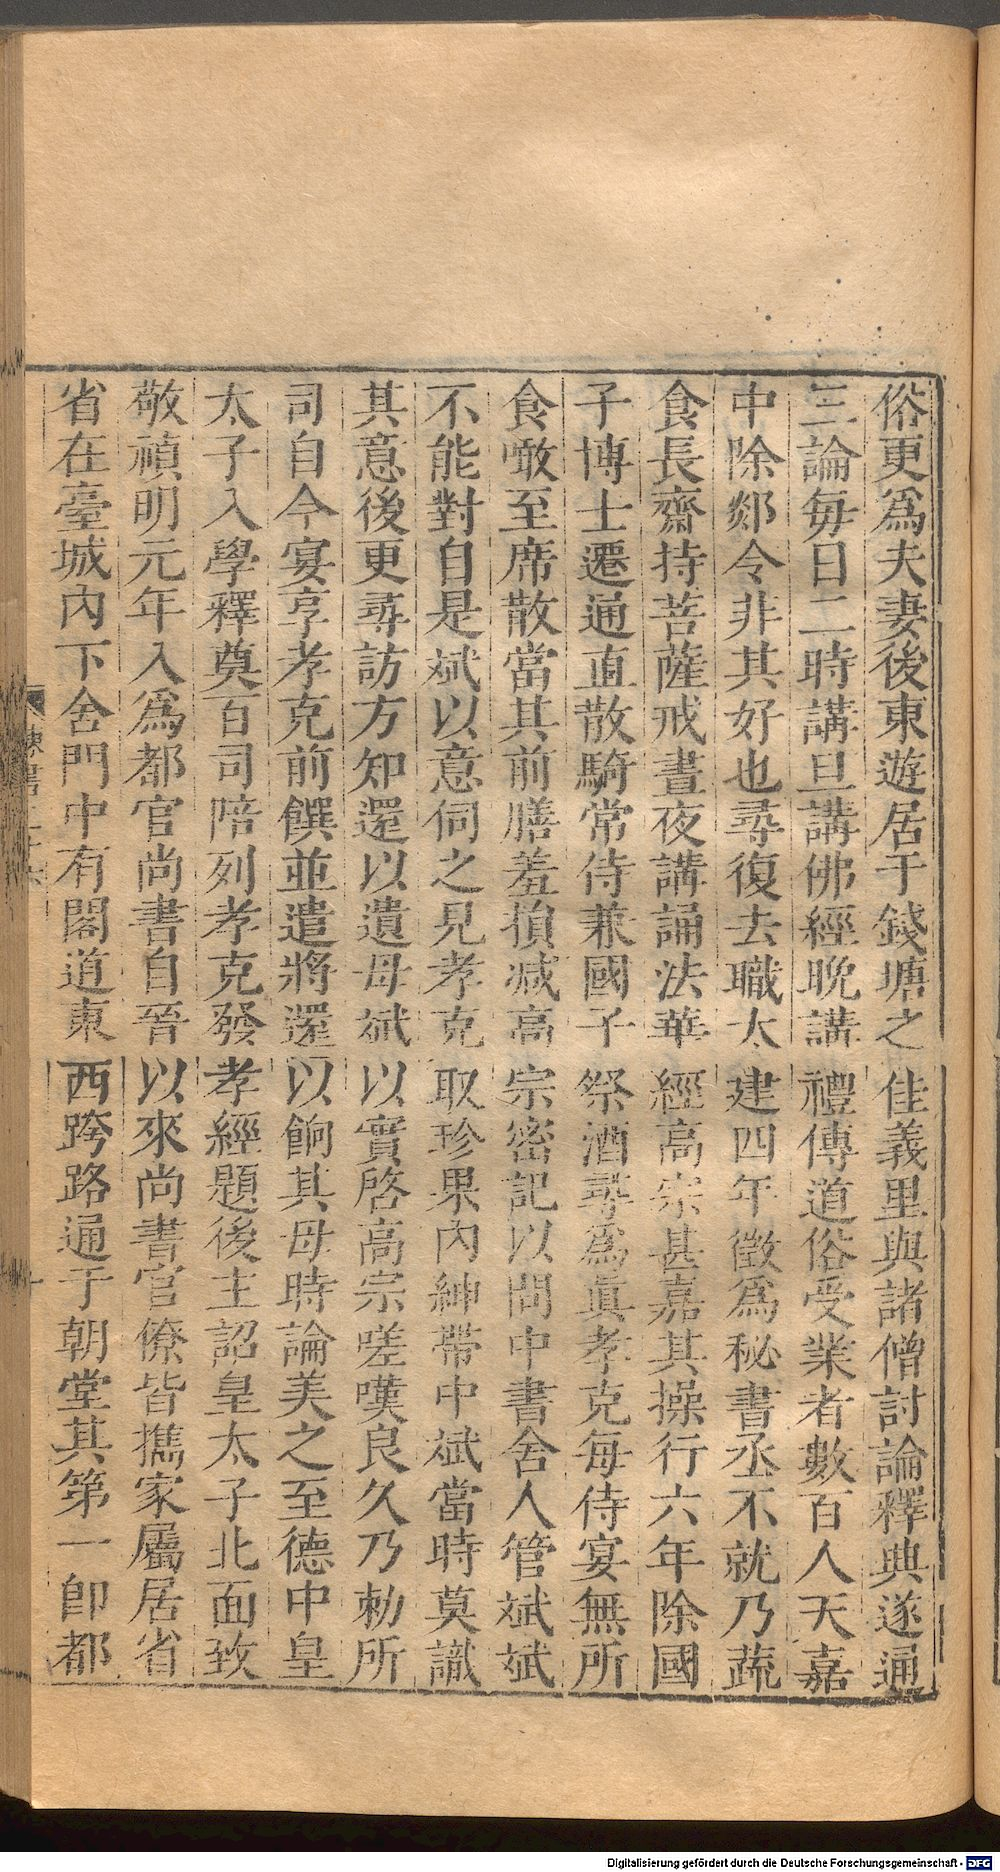 俗更爲夫妻後東遊居于錢塘之佳義里與諸僧討論釋典遂通
三論每日二時講旦講佛經晚講禮傳道俗受業者數百人天嘉
中除郯令非其好也尋復去職太建四年徵爲秘書丞不就乃蔬
食長齋持菩薩戒晝夜講誦法華經高宗甚嘉其操行六年除國
子博士遷通直散騎常侍兼國子祭酒尋爲眞孝克每侍宴無所
食噉至席散當其前膳羞損减高宗密記以問中書舍人管斌斌
不能對自是斌以意伺之見孝克取珍果內紳帶中斌當時莫識
其意後更尋訪方知還以遺母斌以實啓高宗嗟嘆良久乃勑所
司自今宴亨孝克前饌並遣將還以餉其母時論美之至德中皇
太子入學釋奠百司陪列孝克發孝經題後主詔皇太子北面致
敬禎明元年入爲都官尚書自晉以來尚書官僚皆攜家屬居省
省在臺城內下舍門中有閣道東西跨路通于朝堂其第一卽都
Digitalisierung gefördert durch die Deutsche Forschungsgemeinschaft - DFG